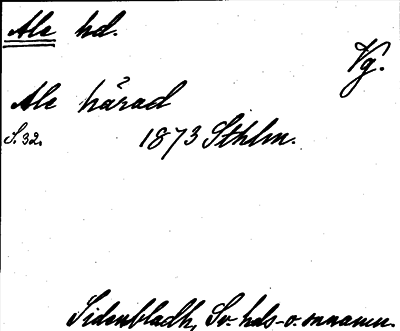 Ale hd.
Vg.
Ale härad
S. 32. 1873 Sthlm.
Sidenbladh, Sv. hds- o. snamn.